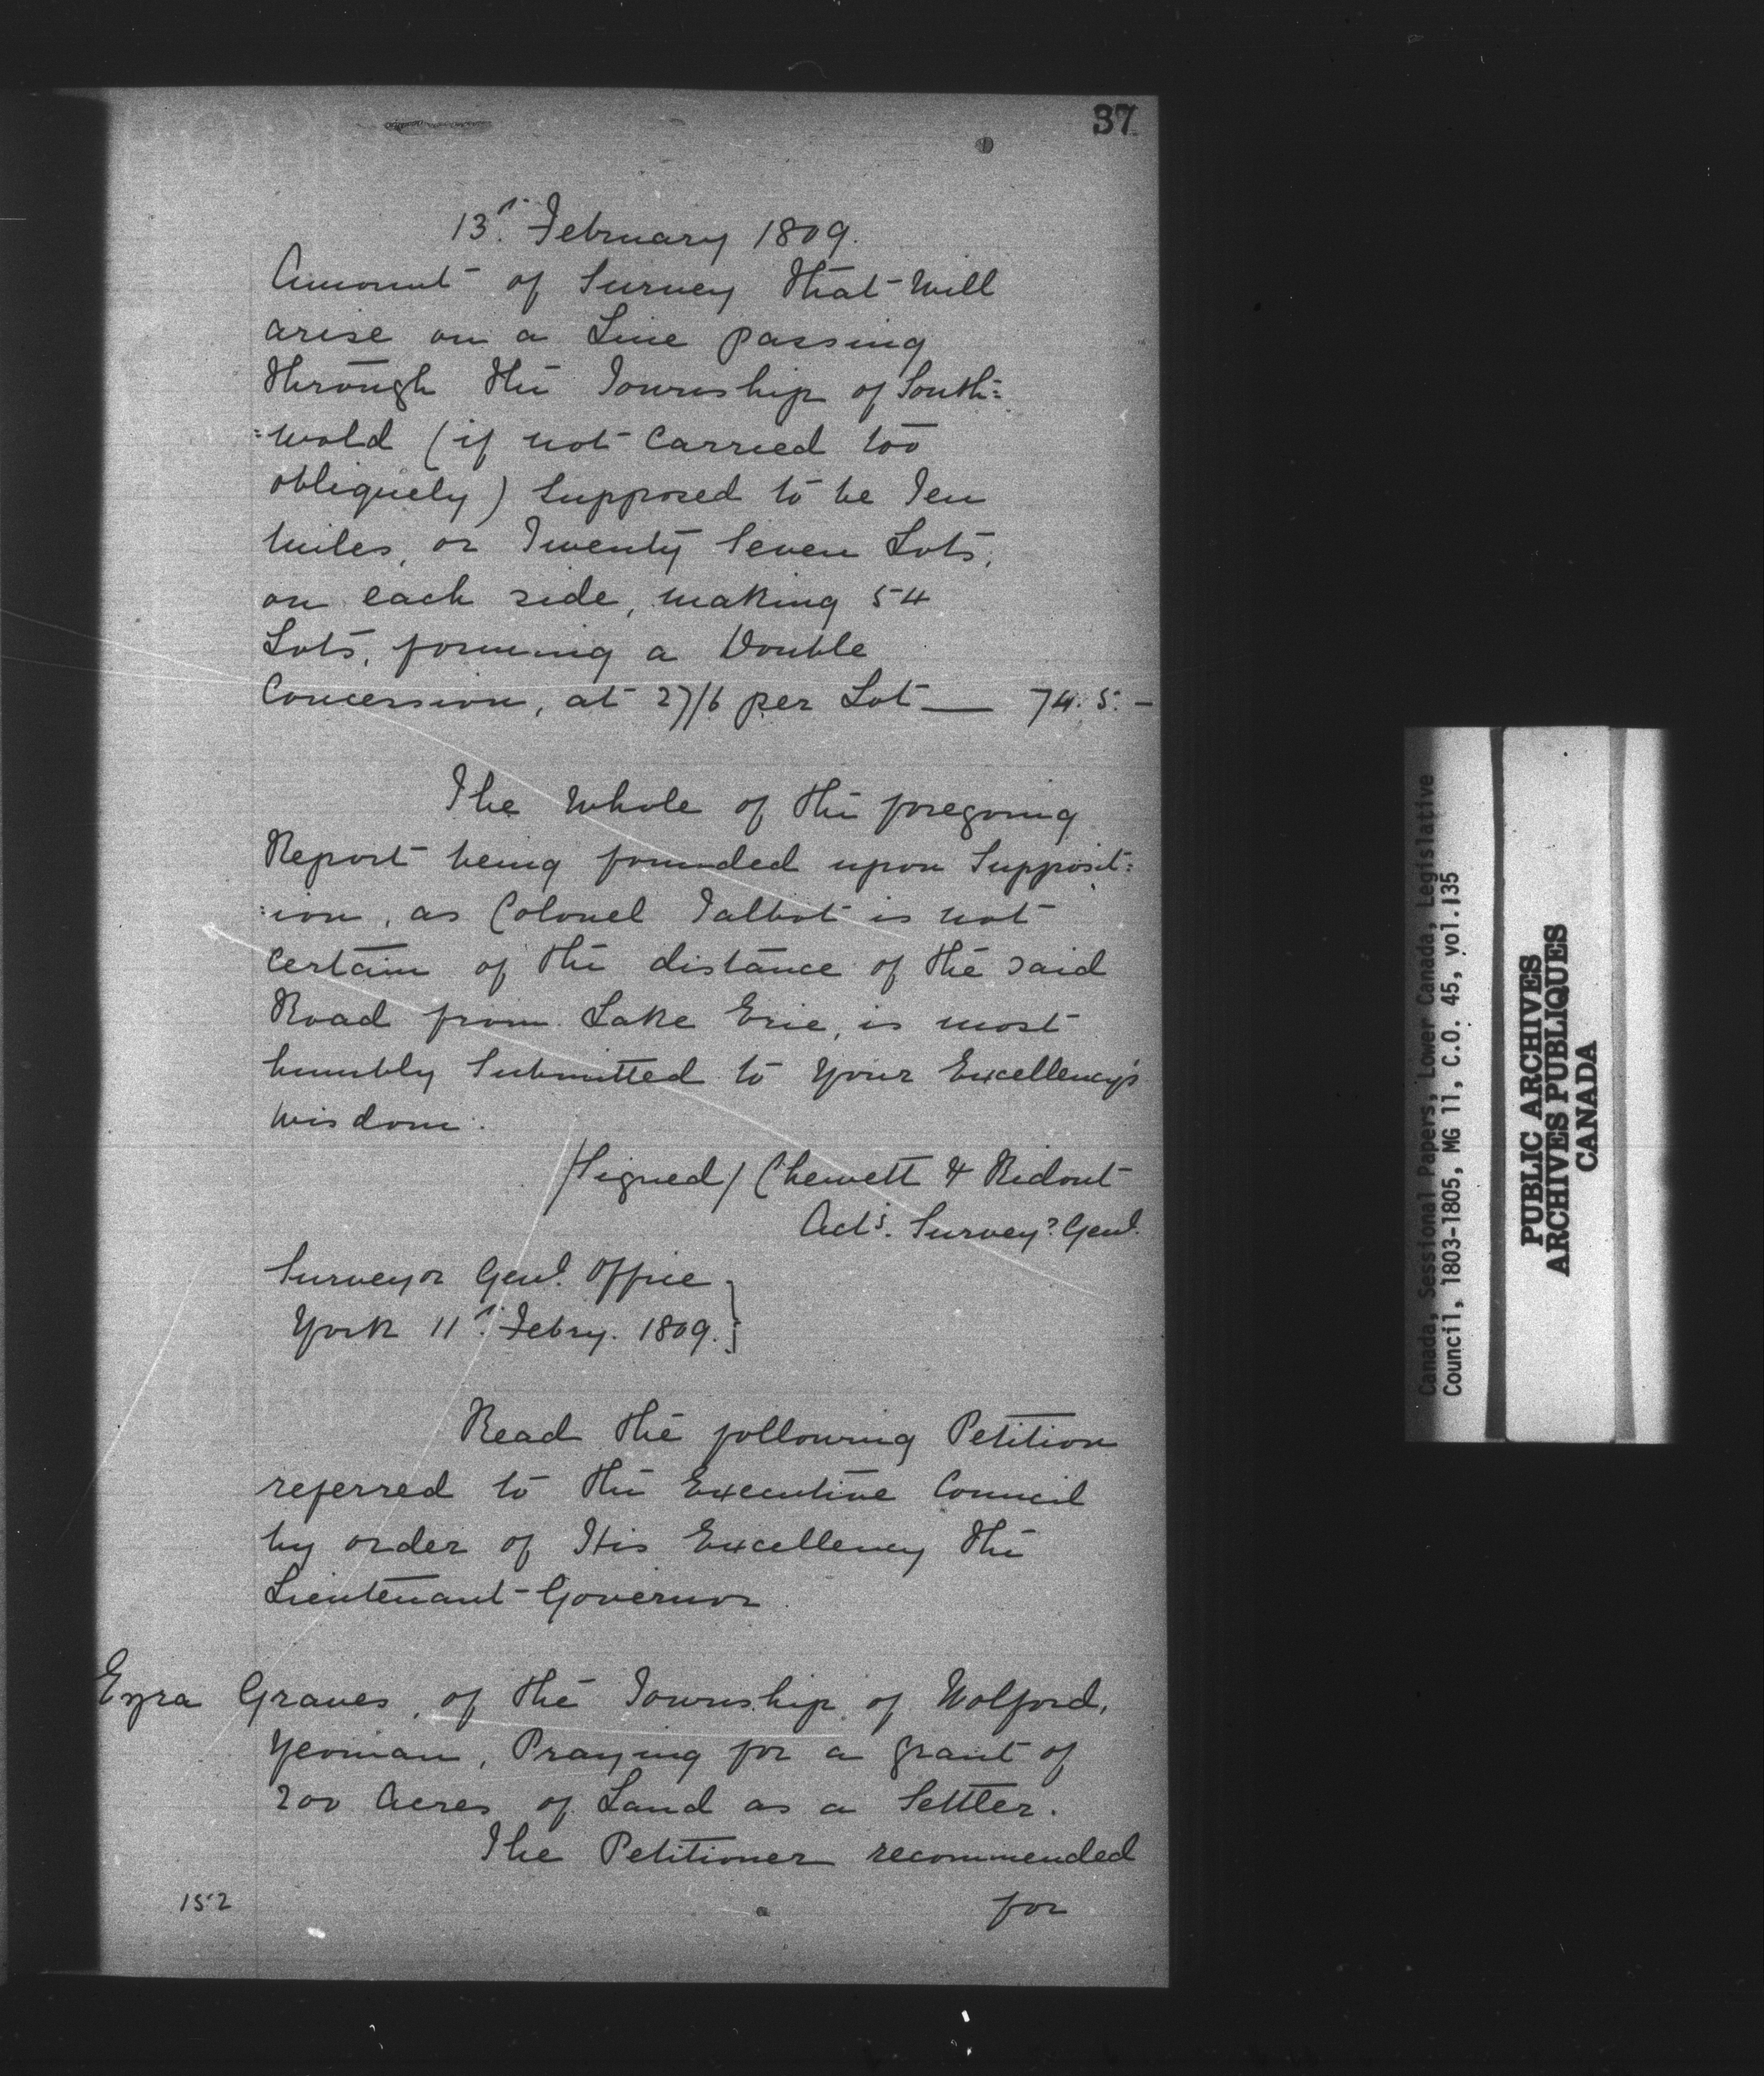 37
13th. February 1809.
Amount of Survey that will
arise on a Line passing
through the Township of South=
=wold (if not carried too
obliquely) supposed to be Ten
Miles, or Twenty Seven Lots,
on each side, making 54
Lots, forming a Double
Concession, at 27/6 per Lot — 74. 5. -
The Whole of the foregoing
Report being founded upon Supposit=
=ion, as Colonel Talbot is not
certain of the distance of the said
Road from Lake Erie, is most
humbly Submitted to Your Excellency's
wisdom.
/Signed/ Chewett & Ridout
Act'g. Survey'rs Genl.
Surveyor Genl. Office
York 11th. Febry. 1809.
Read the following Petition
referred to the Executive Council
by order of His Excellency the
Lieutenant-Governor
Ezra Graves, of the Township of Wolford,
Yeoman, Praying for a grant of
200 Acres of Land as a Settler.
The Petitioner recommended
for
152
Canada, Sessional Papers, Lower Canada, Legislative
Council, 1803-1805, MG 11, C.O. 45, vol.135
PUBLIC ARCHIVES
ARCHIVES PUBLIQUES
CANADA